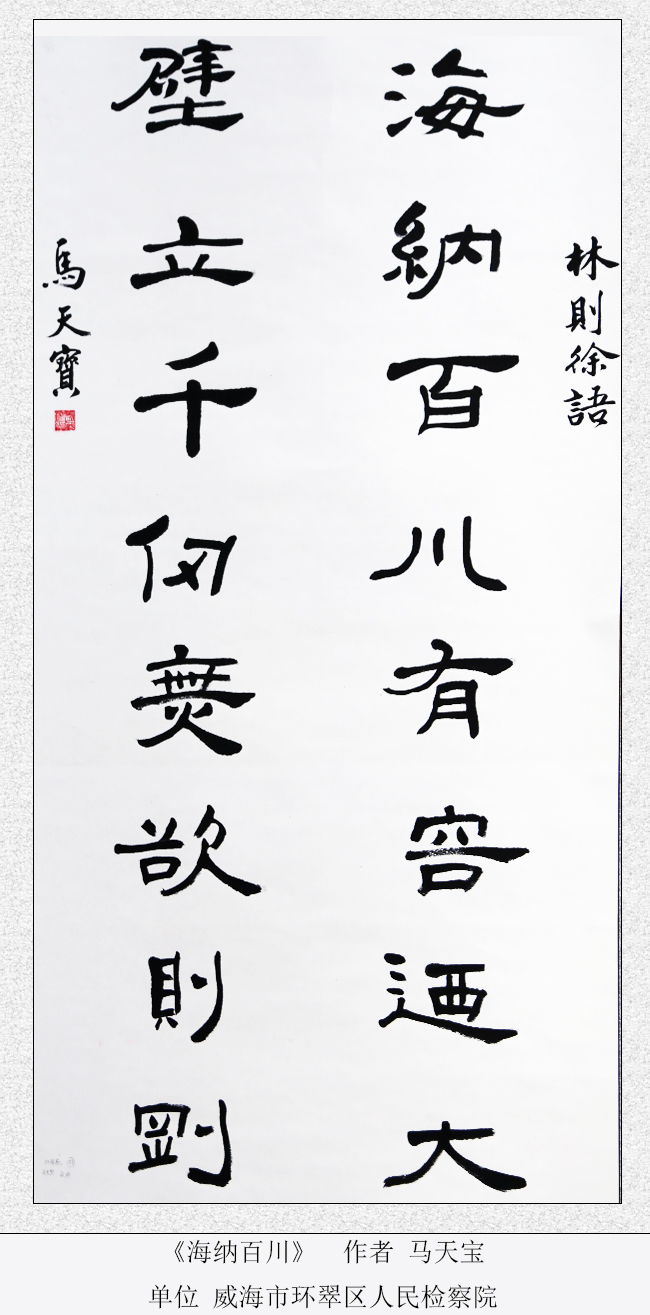 林則徐語
海納百川有容迺大
壁立千仞無欲則剛
馬天寶
《海纳百川》 作者 马天宝
单位 威海市环翠区人民检察院